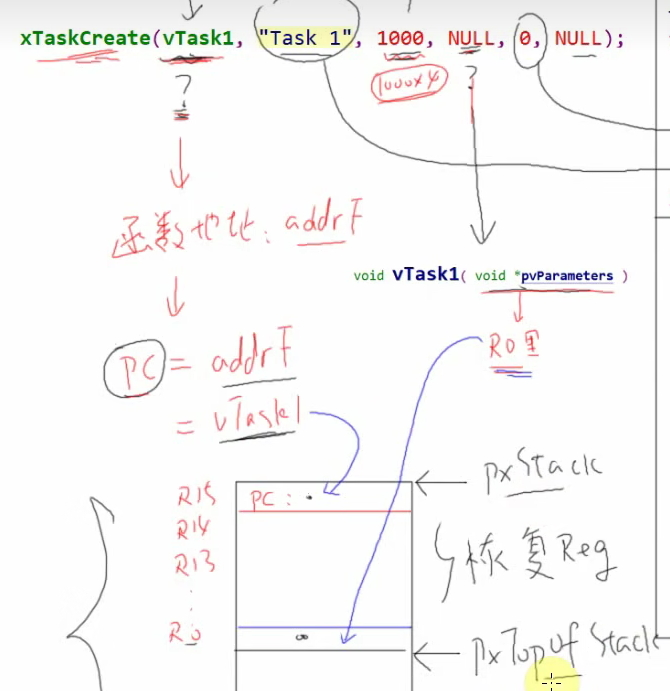 xTaskCreate(vTask1, "Task 1", 1000, NULL, 0, NULL);
?
1000x4
?
函数地址: addrF
void vTask1( void *pvParameters )
PC = addrF
R0里
= vTask1
pxStack
R15 PC:
R14
R13
恢复Reg
R0
pxTopOf Stack